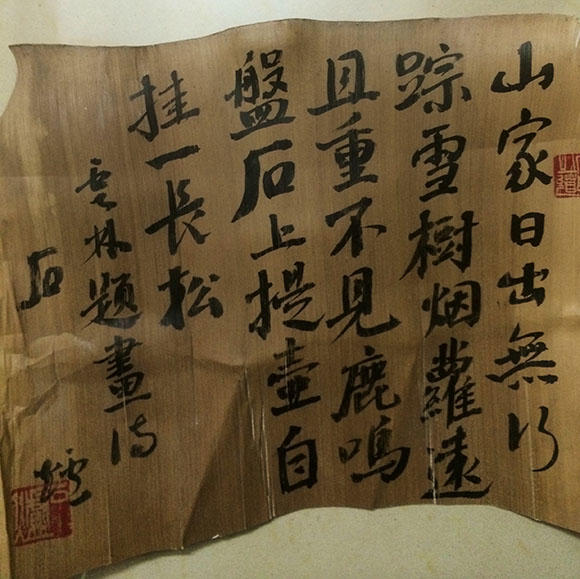 山家日出無行
踪雪樹烟蘿遠
且重不見鹿鳴
盤石上提壺自
挂一長松
雲林題畫詩
石